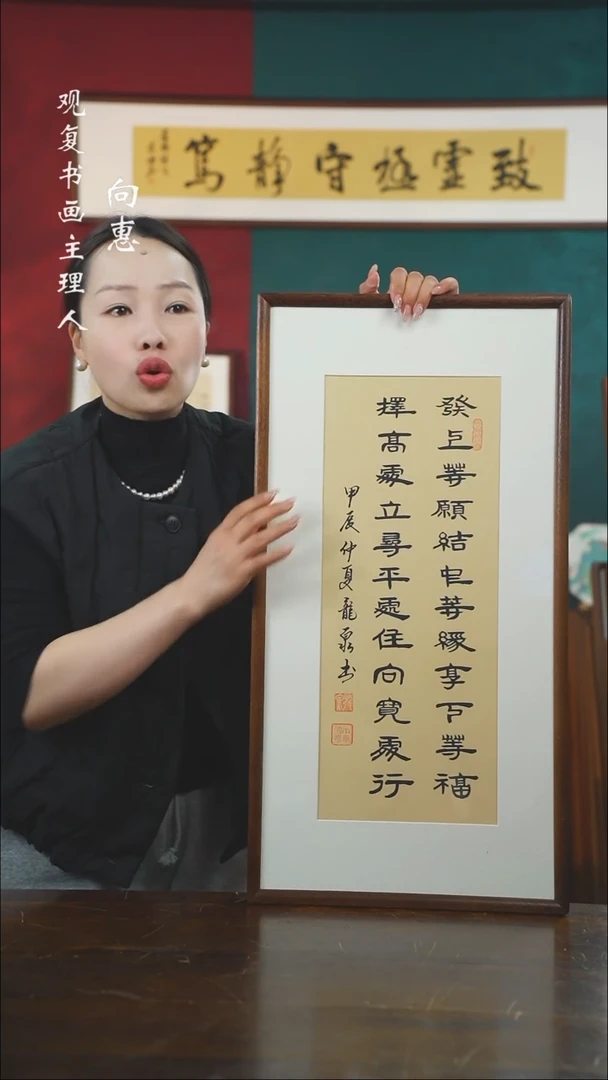 观复书画主理人
向惠
致虚極守静篤
發上等願結中等緣享下等福
擇高處立尋平處住向寬處行
甲辰仲夏龍泉书